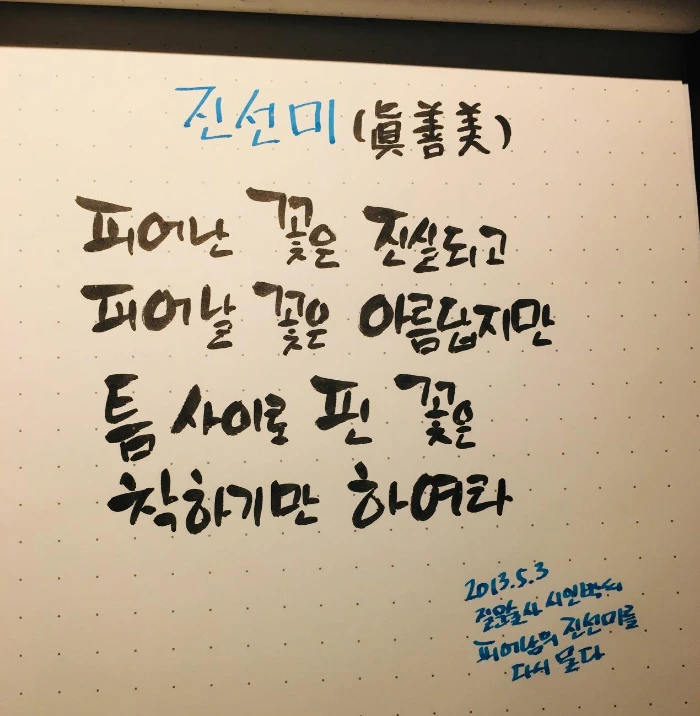 진선미(眞善美)
피어난 꽃은 진실되고
피어날 꽃은 아름답지만
틈 사이로 핀 꽃은
착하기만 하여라
2013.5.3
질문술사 시인박씨
피어남의 진선미를
다시 묻다